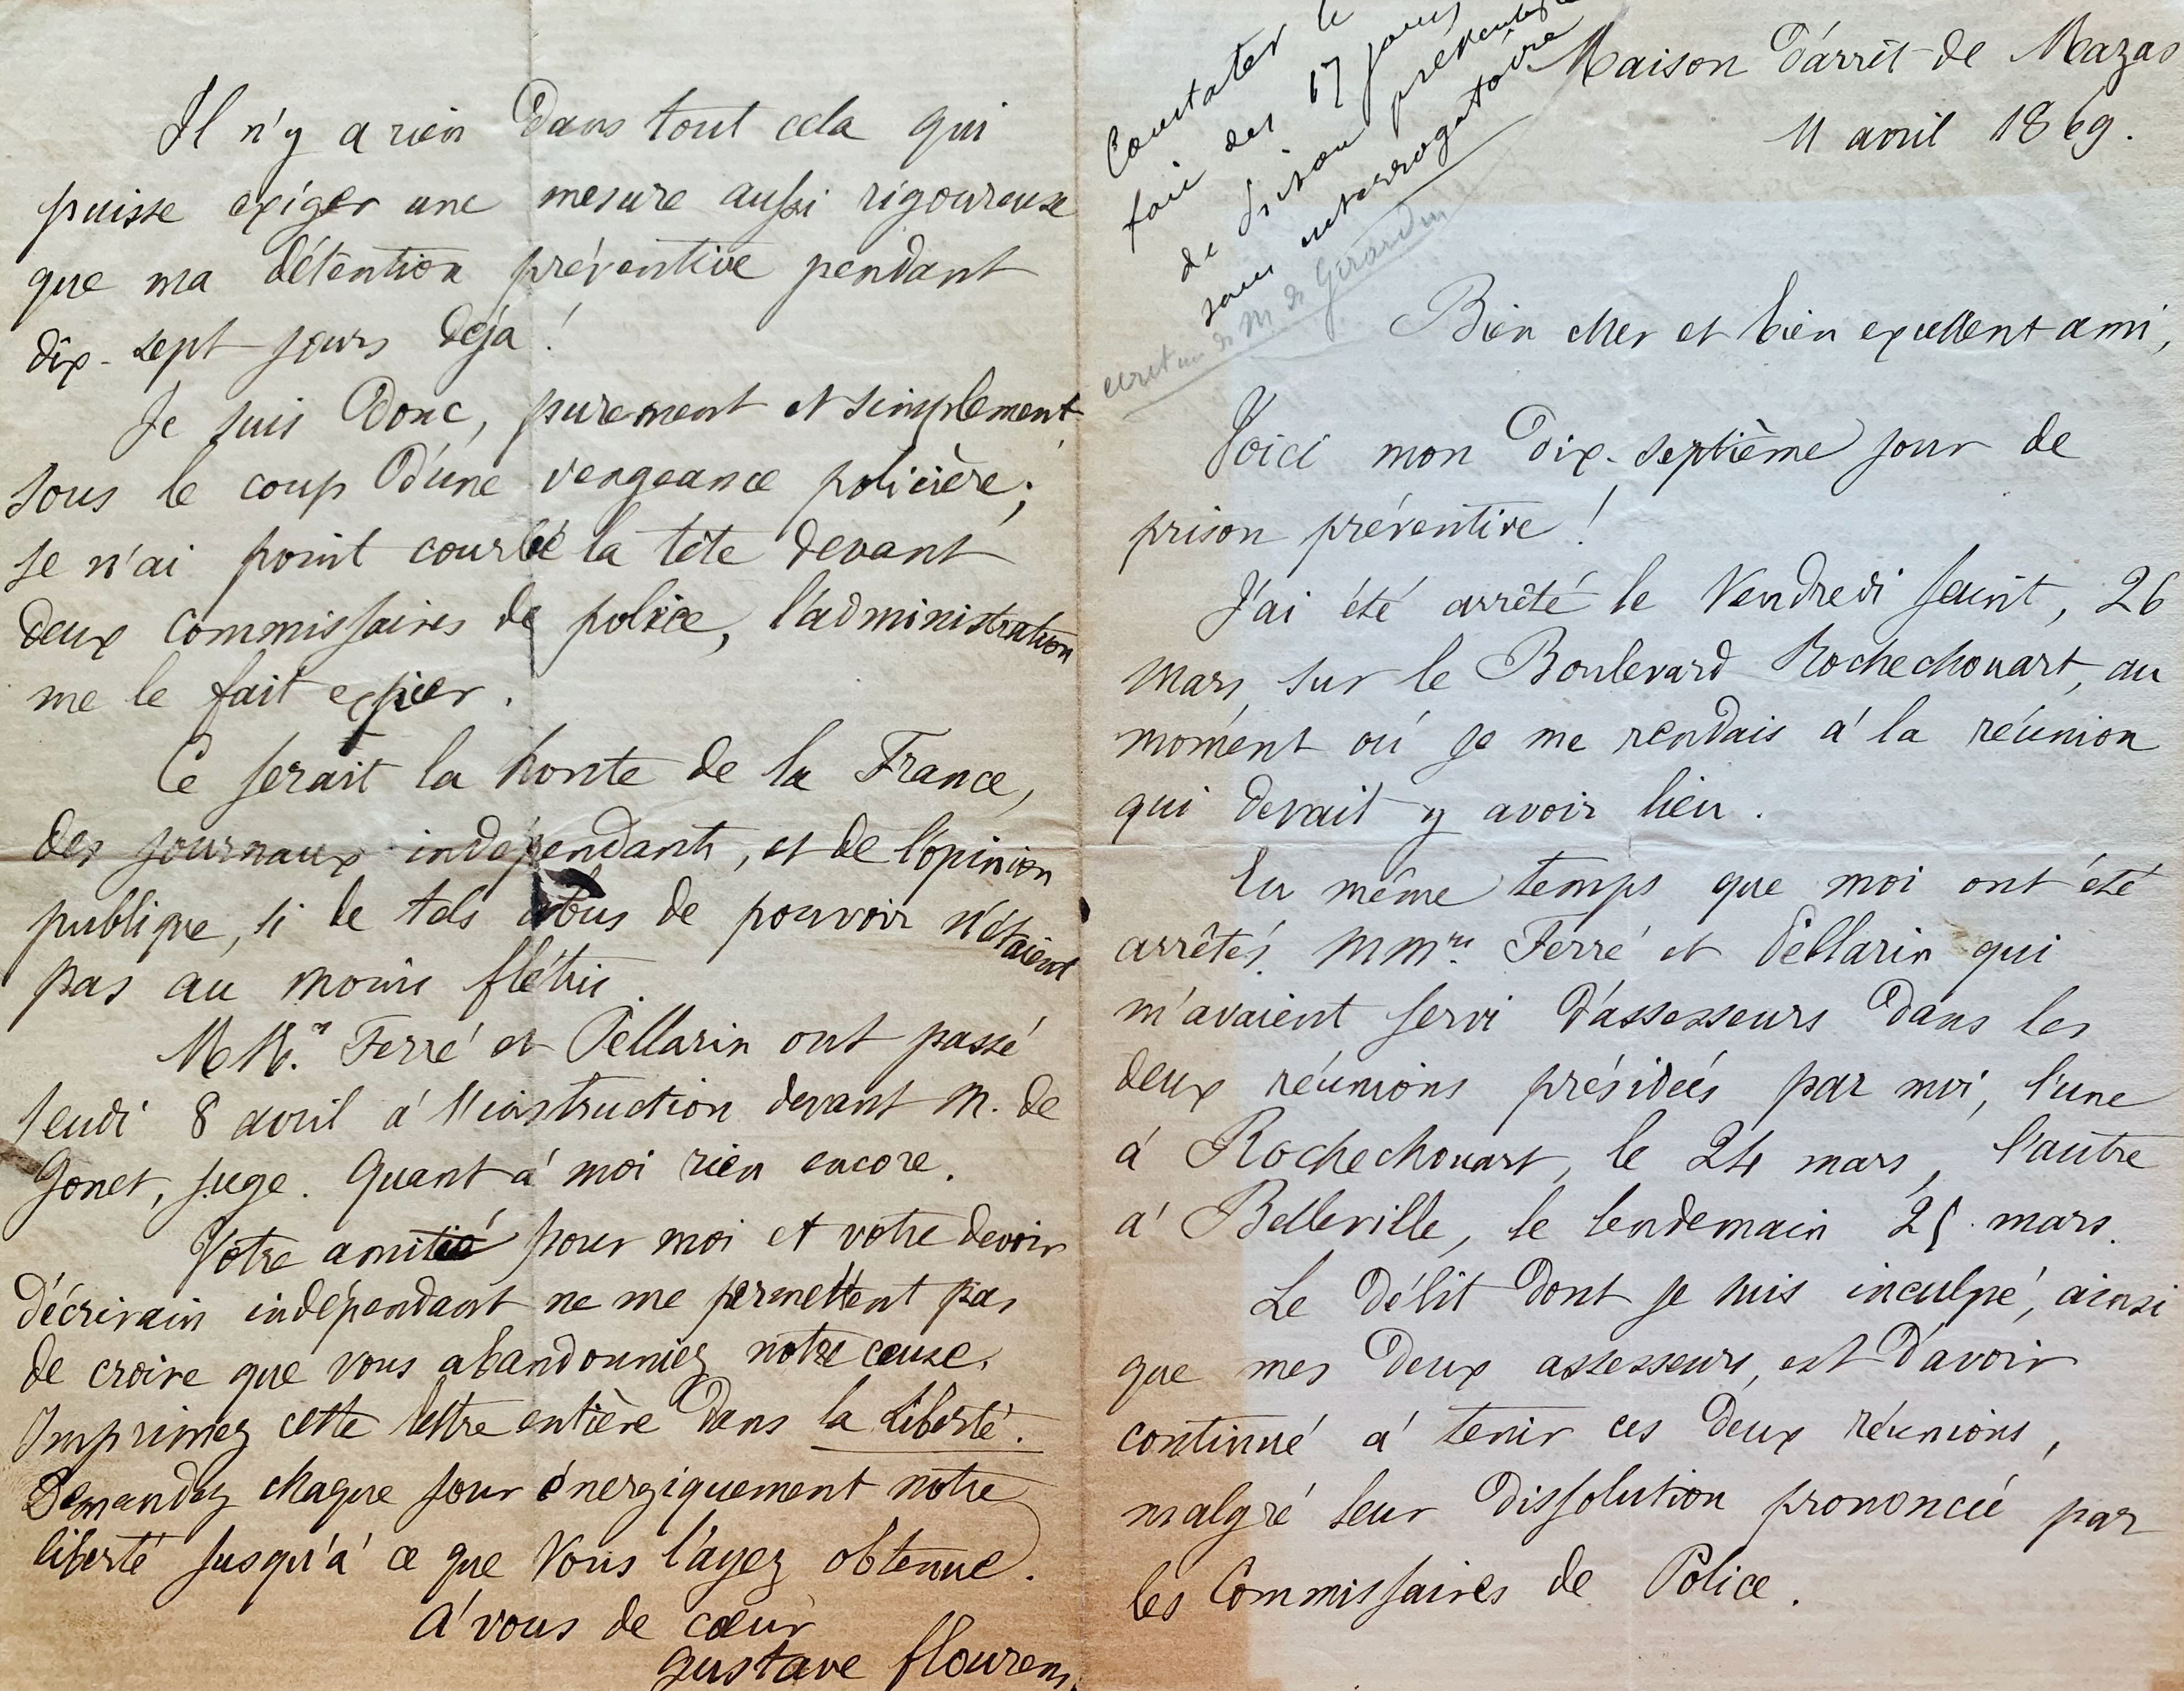 Maison d'arrêt de Mazas
11 avril 1869.
Constater le
fait des 17 jours
de prison préventive
sans interrogatoire
écriture de M de Girardin
Bien cher et bien excellent ami,
Voici mon dix-septième jour de
prison préventive !
J'ai été arrêté le Vendredi saint, 26
mars, sur le Boulevard Rochechouart, au
moment où je me rendais à la réunion
qui devait y avoir lieu.
En même temps que moi ont été
arrêtés MMrs. Ferré et Pellarin qui
m'avaient servi d'assesseurs dans les
deux réunions présidées par moi, l'une
à Rochechouart, le 24 mars, l'autre
à Belleville, le lendemain 25 mars.
Le délit dont je suis inculpé, ainsi
que mes deux assesseurs, est d'avoir
continué à tenir ces deux réunions,
malgré leur dissolution prononcée par
les Commissaires de Police.
Il n'y a rien dans tout cela qui
puisse exiger une mesure aussi rigoureuse
que ma détention préventive pendant
dix-sept jours déjà !
Je suis donc, purement et simplement
sous le coup d'une vengeance policière ;
je n'ai point courbé la tête devant
deux commissaires de police, l'administration
me le fait expier.
Ce serait la honte de la France,
des journaux indépendants, et de l'opinion
publique, si de tels abus de pouvoir n'étaient
pas au moins flétris.
MM.rs Ferré et Pellarin ont passé
jeudi 8 avril à l'instruction devant M. de
Gonet, juge. Quant à moi rien encore.
Votre amitié pour moi et votre devoir
d'écrivain indépendant ne me permettent pas
de croire que vous abandonniez notre cause.
Imprimez cette lettre entière dans la Liberté.
Demandez chaque jour énergiquement notre
liberté jusqu'à ce que vous l'ayez obtenue.
A vous de cœur
Gustave Flourens.